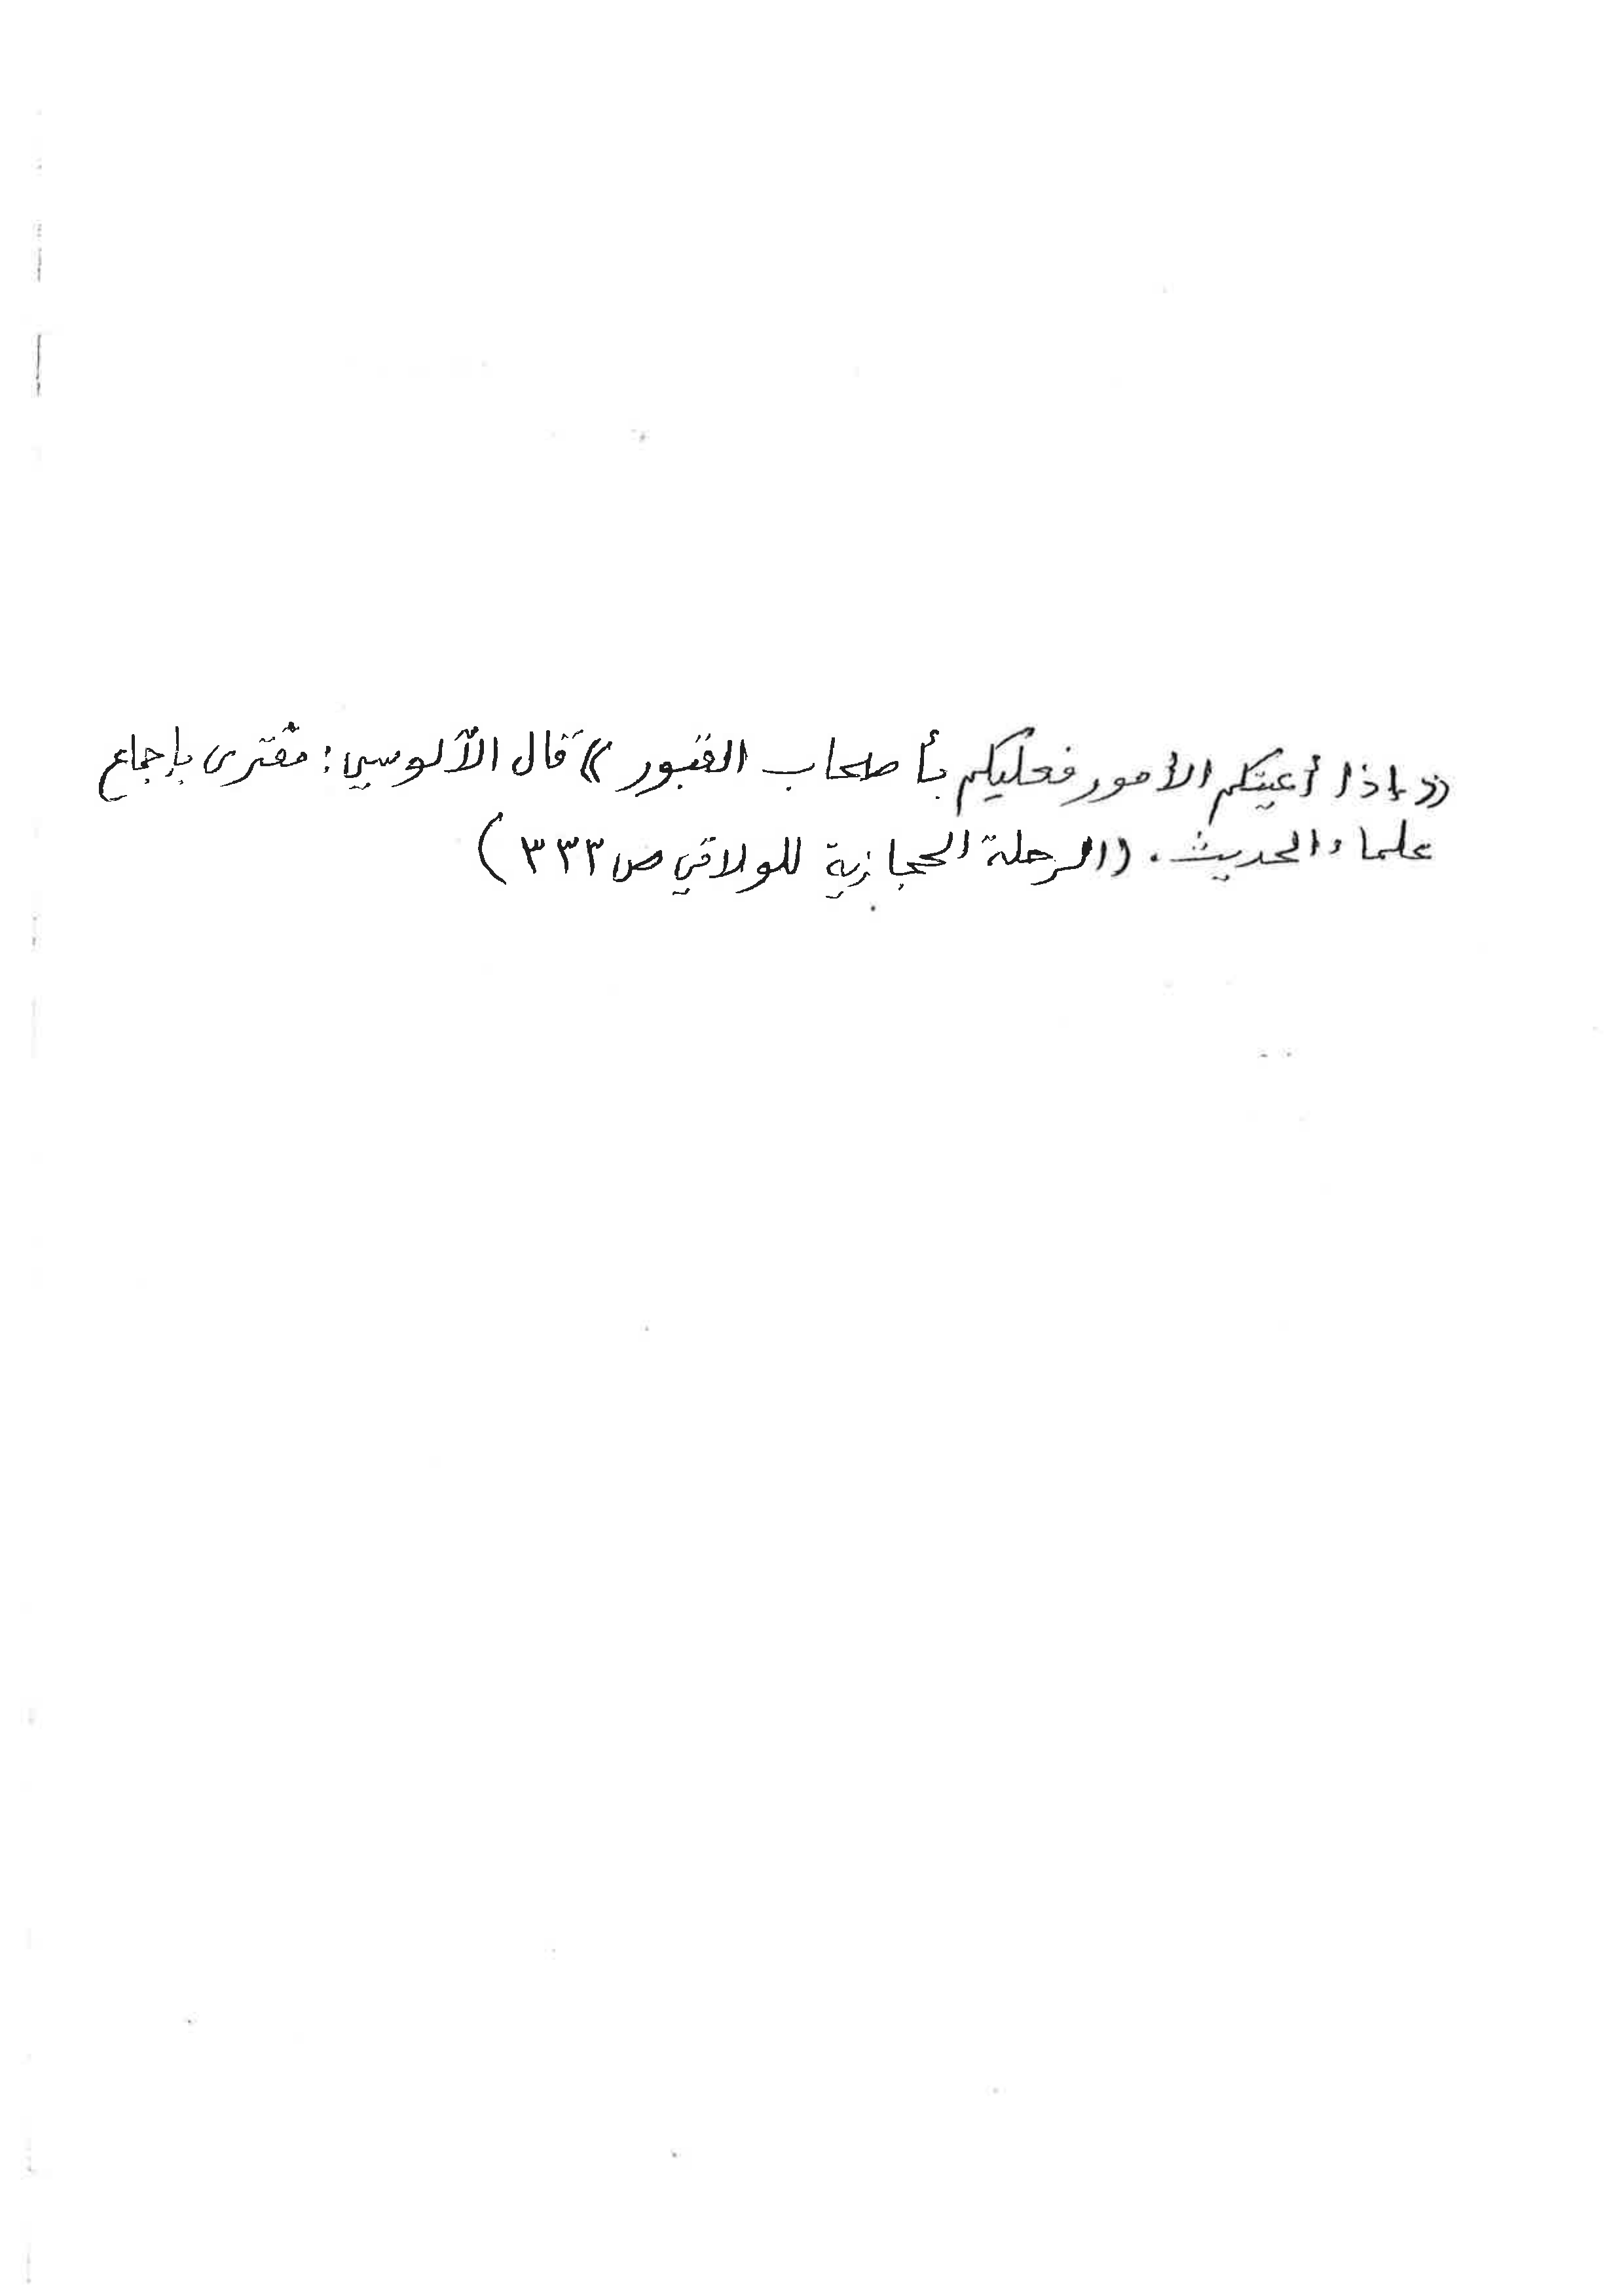 «إذا أعيتكم الأمور فعليكم بأصحاب القبور» قال الآلوسي: مفترى بإجماع
علماء الحديث. (الرحلة الحجازية للولاتي ص ٣٣٣)